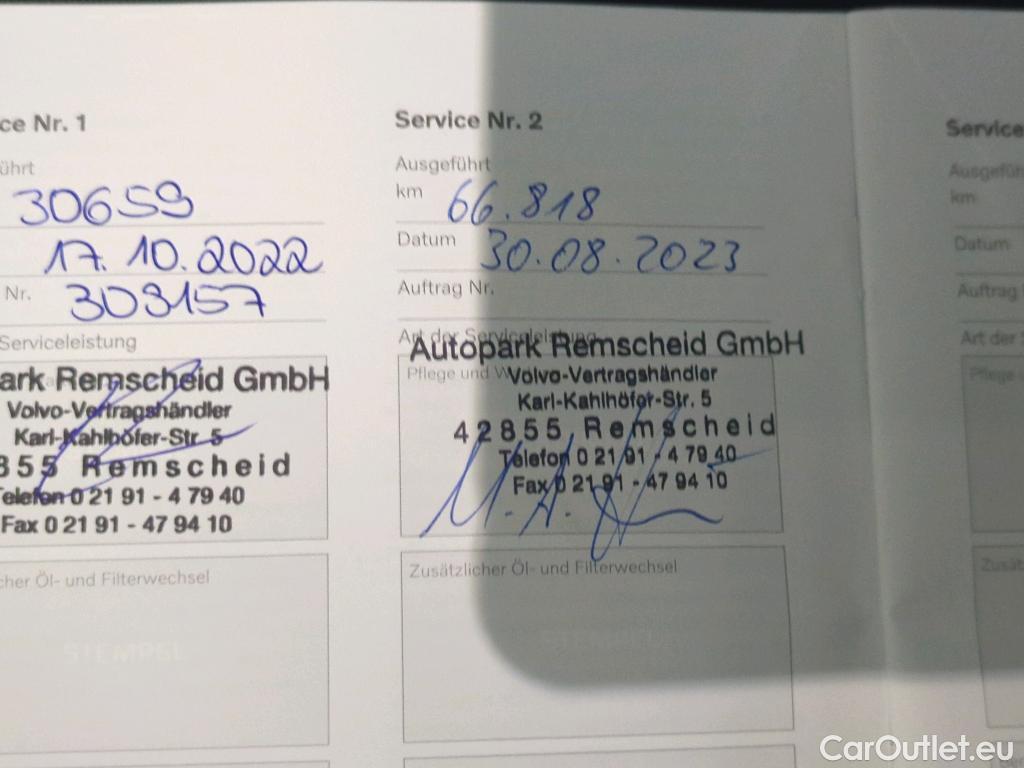 ce Nr. 1
ührt
30659
17.10.2022
Nr. 309157
Serviceleistung
park Remscheid GmbH
Volvo-Vertragshändler
Karl-Kahlhöfer-Str. 5
855 Remscheid
Telefon 0 21 91 - 4 79 40
Fax 0 21 91 - 47 94 10
cher Öl- und Filterwechsel
STEMPEL
Service Nr. 2
Ausgeführt
km 66.818
Datum 30.08.2023
Auftrag Nr.
Art der Serviceleistung
Autopark Remscheid GmbH
Pflege und W
Volvo-Vertragshändler
Karl-Kahlhöfer-Str. 5
42855 Remscheid
Telefon 0 21 91 - 4 79 40
Fax 0 21 91 - 47 94 10
Zusätzlicher Öl- und Filterwechsel
STEMPEL
Service
Ausgefüh
km
Datum
Auftrag
Art der S
Pflege
Zusät
CarOutlet.eu